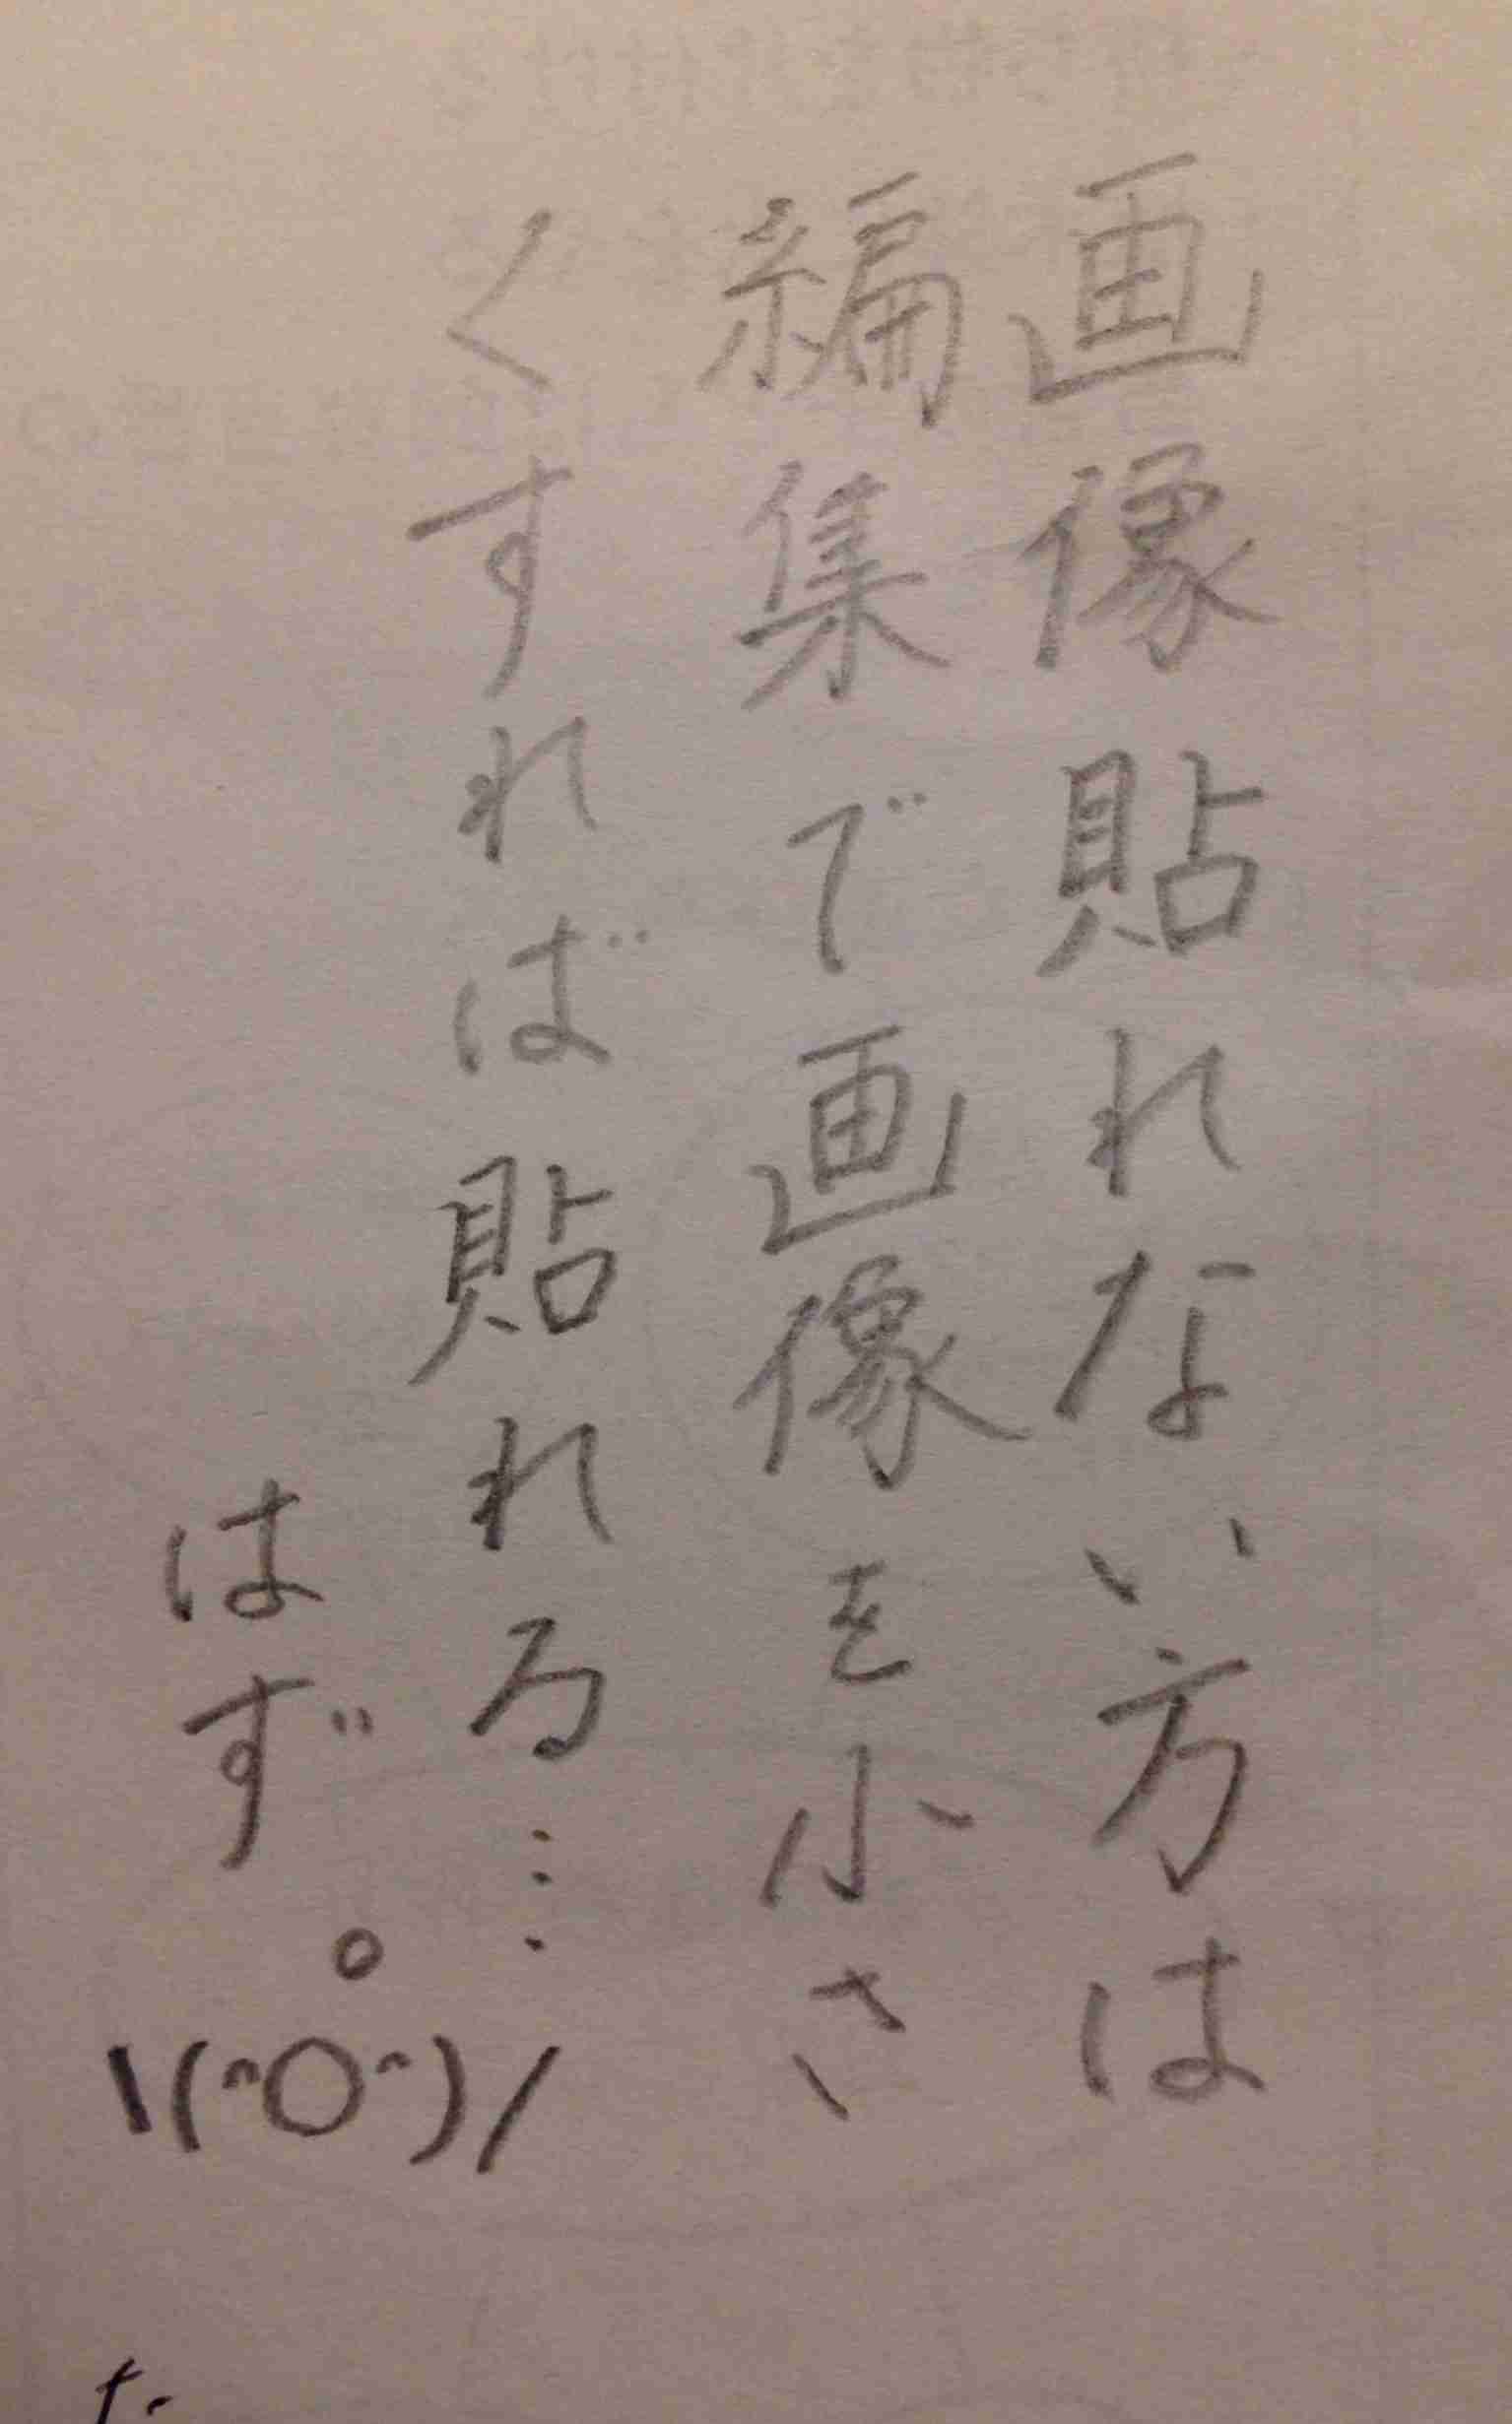 画像貼れない方は
編集で画像を小さ
くすれば貼れる……
はず。
\(^O^)/